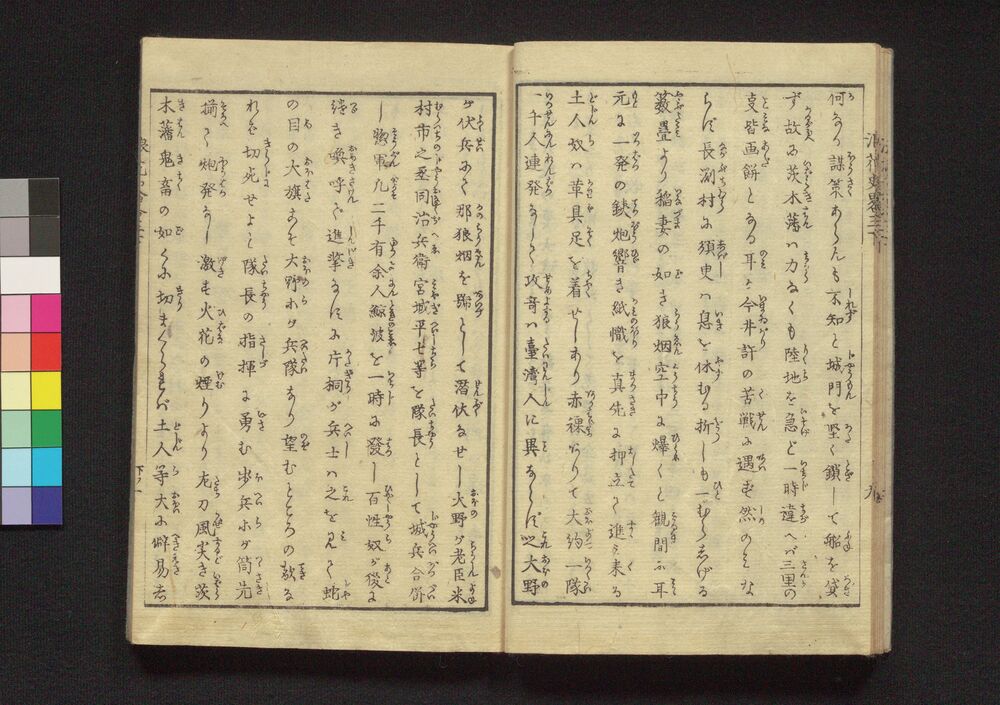 何なる謀策あらんも不知と城門を堅く鎖して船を貸
ず故に茨木藩ハ力なくも陸地を急ど一時違へバ三里の
皆画餅となる耳と今井許の苦戦に遇も然のミな
らず長渕村に須臾ハ息を休むる折しも一むら志げる
藪疊より稲妻の如き狼烟空中に爆くと観間に耳
元に一発の鉄炮響き紙幟を真先に押立て進ミ来る
土人奴ハ革具足を着せしあり赤裸なりて大約一隊
一千人連発なしく攻音ハ臺湾人に異ならず是大野
が伏兵にて那狼烟を号として潜伏なせし大野が老臣米
村市之丞同治兵衛宮城平七等を隊長として城兵合併
し惣軍九二千有余人鯨波を一時に發し百性奴が後に
續き喚呼て進撃なすに片桐が兵士ハ之を見て蛇
の目の大旗まさ大野が兵隊あり望むところの敵な
れバ切死せよと隊長の指揮に勇む歩兵等が筒先
揃て炮発なし激す火花の煙りより太刀風実き茨
木藩鬼畜の如くに切まくられバ土人等大に辟易去